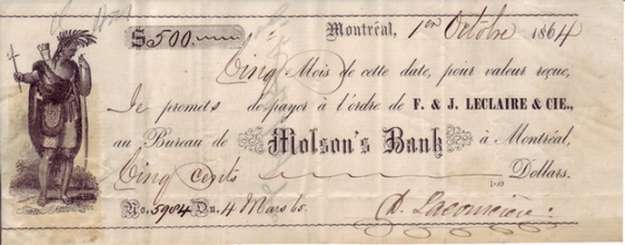 $500.
Montréal, 1er Octobre 1864
Cinq Mois de cette date, pour valeur reçue,
Je promets de payer à l'ordre de F. & J. LECLAIRE & CIE.,
au Bureau de Molson's Bank à Montréal,
Cinq cents Dollars.
No. 5984 Du 4 Mars 65